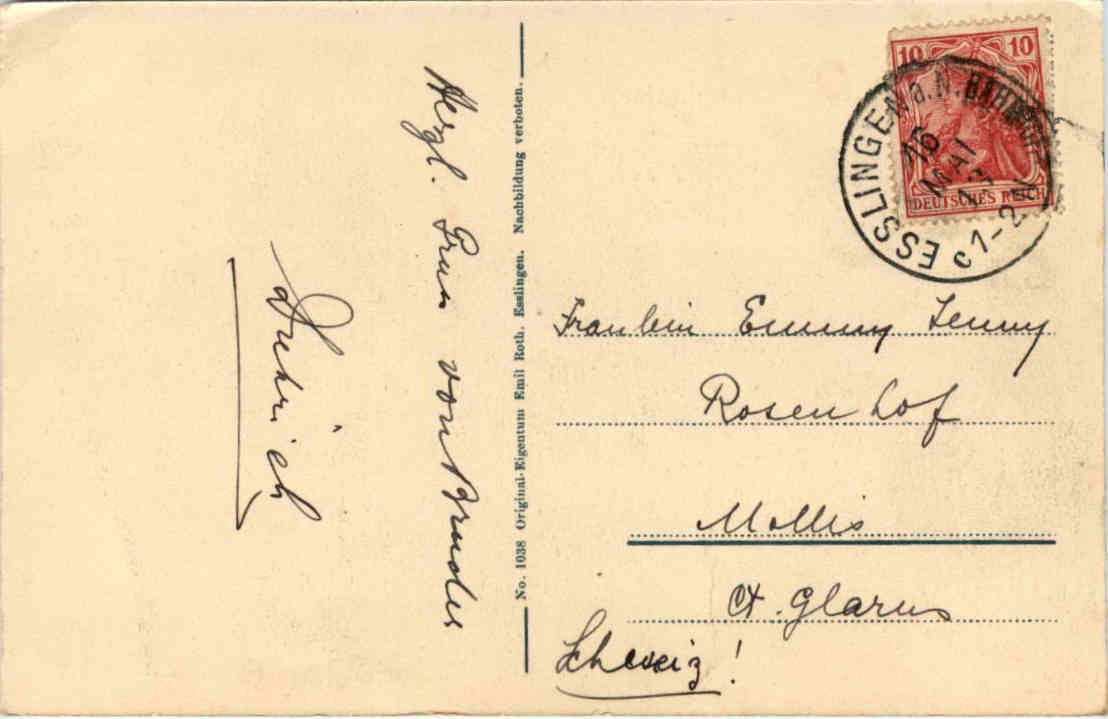 Herzl. Gruss von Bruder
No. 1038 Original-Eigentum Emil Roth. Esslingen. Nachbildung verboten.
10 10
DEUTSCHES REICH
ESSLINGEN a. N. BAHNHOF
MAI
13
c 1-2 N
Fräulein Emmy Jenny
Rosenhof
Mollis
Ct. Glarus
Schweiz!